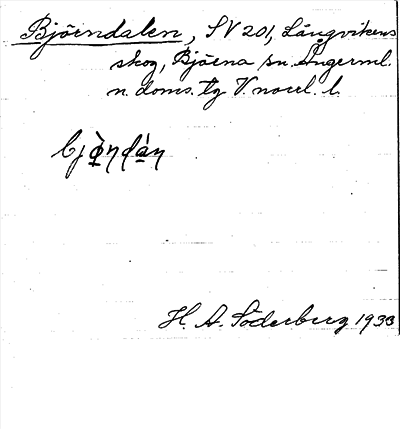 Björndalen, SV 201, Långvikens
skog, Björna sn. Ångerml.
n. doms. tg V. norrl. l.
bjɷ̀ṇdáṇ
H. A. Söderberg 1933